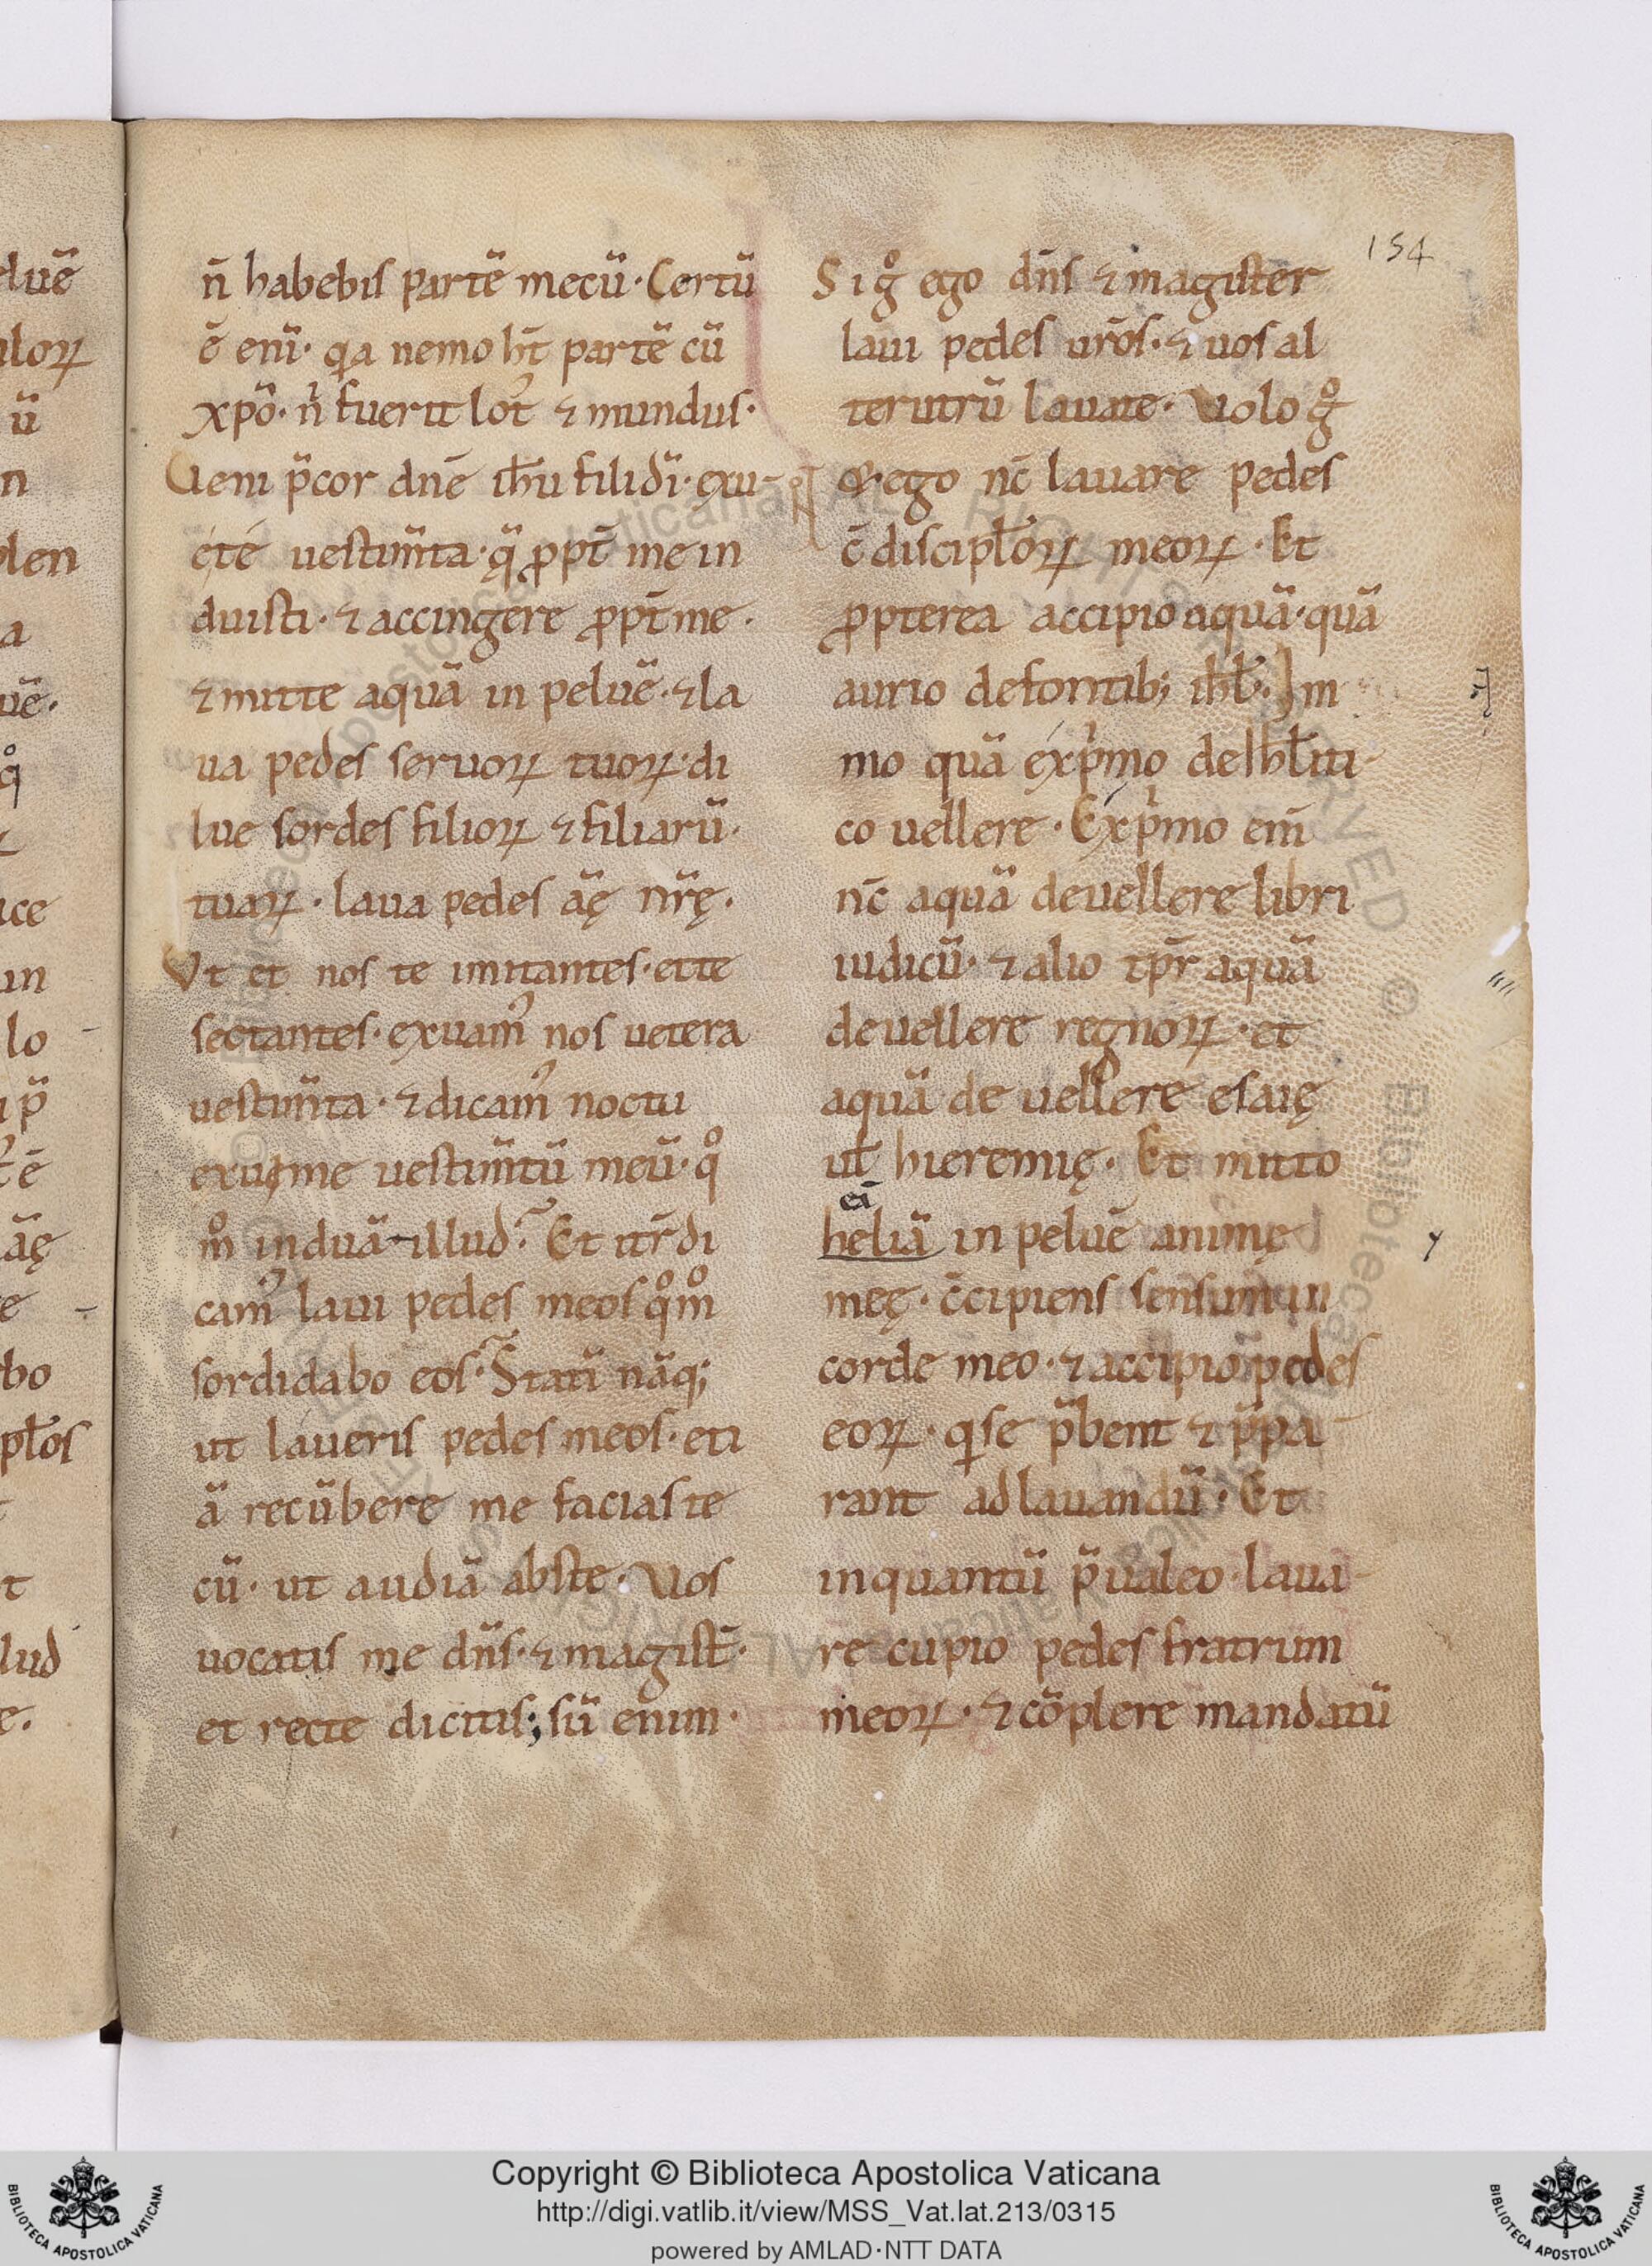 154
n̄ habebis partē mecū. Certū
ē eni. qa nemo ht̄ partē cū
xpō. n̄ fuerit lot᾿ ⁊ mundus.
Ueni p̄cor dn̄e ih̄u fili di. exu-
ete uestim̄ta. q̄ ꝓpt̄ me in
duisti. ⁊ accingere ꝓpt̄ me.
⁊ mitte aquā in peluē. ⁊ la
ua pedes seruoꝝ tuoꝝ. di
lue sordes filioꝝ ⁊ filiarū.
tuaꝝ. laua pedes āę nr̄ę.
Ut et nos te imitantes. et te
sectantes. exuam᾿ nos uetera
uestim̄ta. ⁊ dicam᾿ noctu
exui me uestim̄tū meū. qͦ
mͦ induā illud? Et itr̄ di
cam᾿ laui pedes meos qͦmͦ
sordidabo eos? Stati nāq;
ut laueris pedes meos. eti
ā recūbere me facias te
cū. ut audiā abs te. Uos
uocatis me dn̄s. ⁊ magist̄.
et recte dicitis; sū enim.
Si gͦ ego dn̄s ⁊ magister
laui pedes ur̄os. ⁊ uos al
terutrū lauate. Uolo gͦ
⁊ ego nc̄ lauare pedes
c̄ discipl̄oꝝ meoꝝ. Et
ꝓpterea accipio aquā. quā
aurio de fontib; ih̄l. Im
mo quā expͥmo de Ih̄liti-
co uellere. Expͥmo em̄
nc̄ aquā de uellere libri
iudicū. ⁊ alio tp̄r aquā
de uellere regnoꝝ. et
aquā de uellere esaię
ul̄ hieremię. Et mitto
eā
heliā in peluē animę
meę. c̄cipiens sensum in
corde meo. ⁊ accipio pedes
eoꝝ. qͥ se p̄bent ⁊ p̄pa-
rant ad lauandū. Et
in quantū p̄ualeo laua-
re cupio pedes fratrum
meoꝝ. ⁊ cōplere mandatū
Copyright © Biblioteca Apostolica Vaticana
http://digi.vatlib.it/view/MSS_Vat.lat.213/0315
powered by AMLAD·NTT DATA
BIBLIOTECA APOSTOLICA VATICANA
BIBLIOTECA APOSTOLICA VATICANA